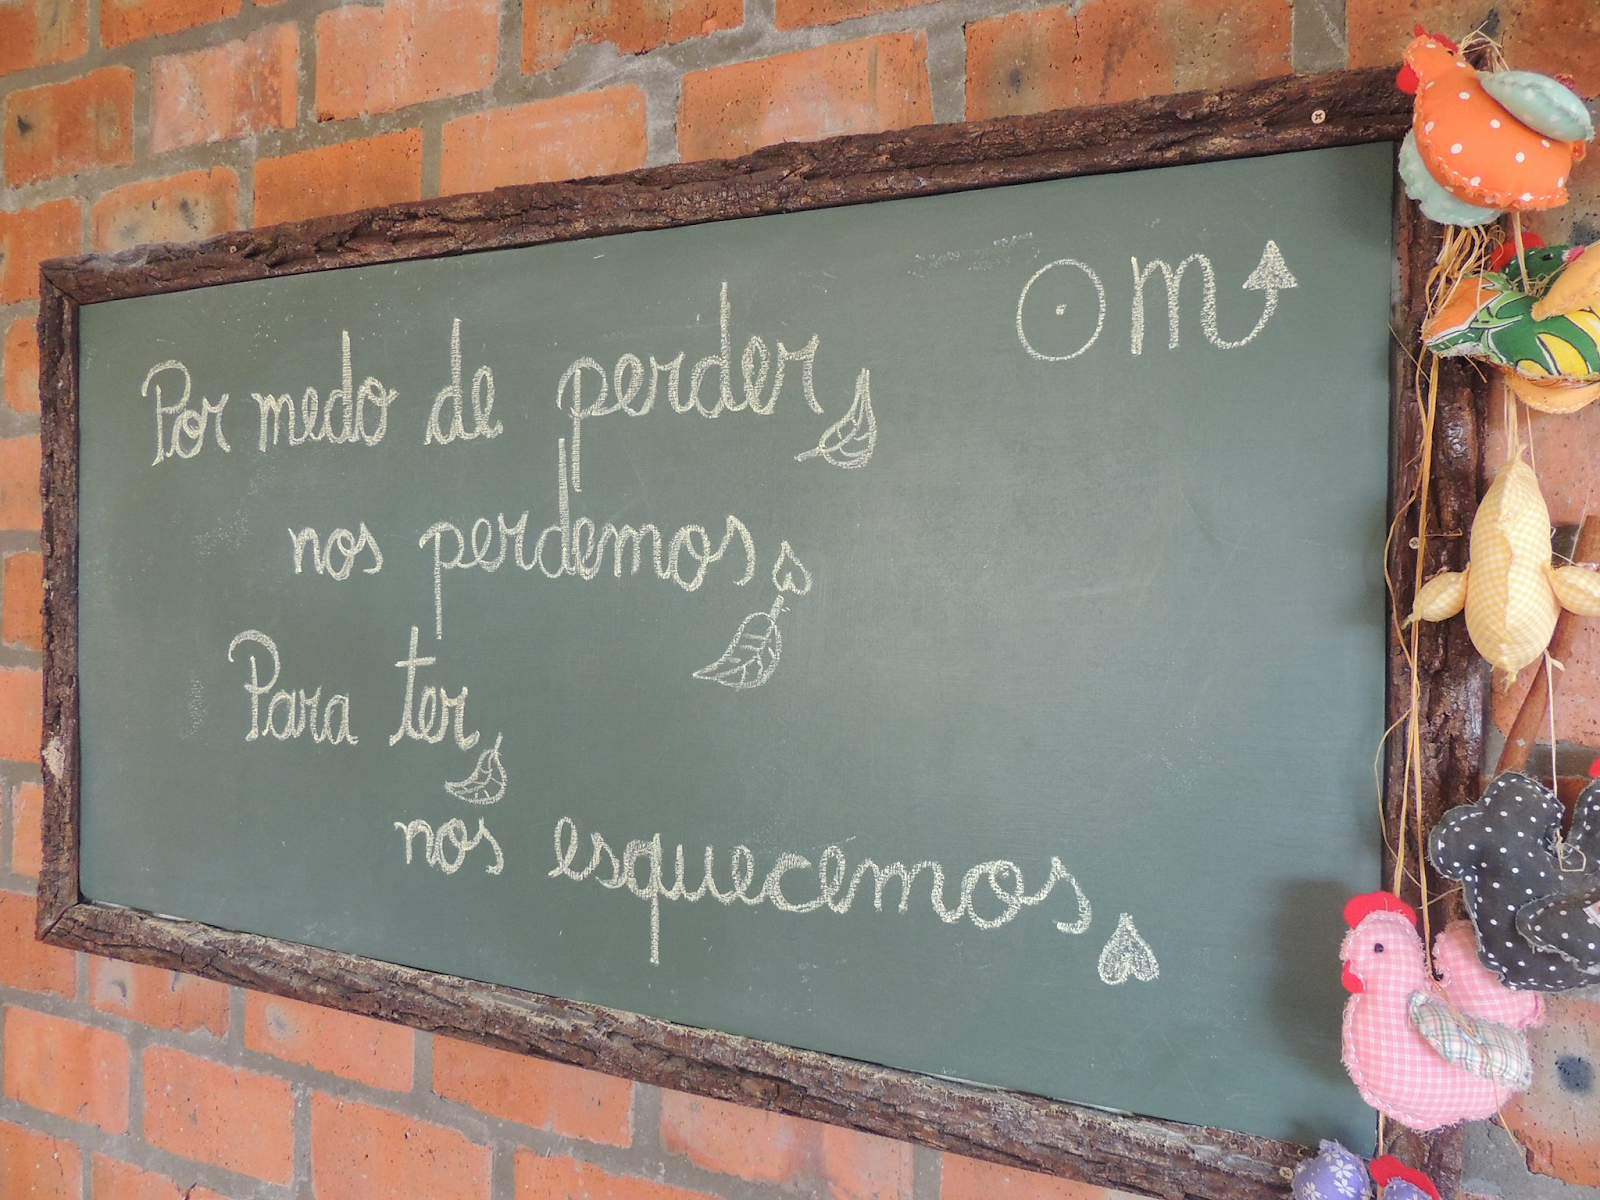 ☉ m
Por medo de perder
nos perdemos
Para ter
nos esquecemos